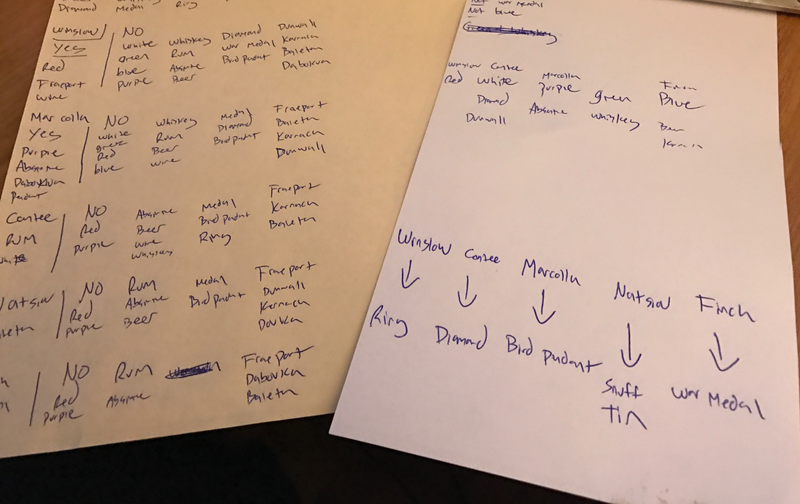 Diamond Medal Ring
Winslow NO
Yes white whiskey Diamond Dunwall
Red green Rum War Medal Karnaca
Fraeport blue Absine Bird pudant Baleton
wine purple Beer Dabokva
Marcolla NO Whiskey Medal Fraeport
Yes white Rum Diamond Baleton
Purple Red Beer Bird pudant Karnaca
Absine blue wine Dunwall
Pudant
Contee NO Absine Medal Fraeport
Rum Red Beer Bird pudant Karnaca
purple wine Ring Baleton
whiskey
NO Rum Medal Fraeport
Red Absine Bird pudant Dunwall
Purple Beer Karnaca
NO Rum Fraeport
Red Absine Dabovka
Purple Baleton
war Medal
Not blue
Winslow Contee Marcolla Finch
Red white Purple green Blue
Diamd Absine whiskey Beer
Dunwall
Winslow Contee Marcolla Natsiou Finch
Ring Diamond Bird pudant Snuff War Medal
Tin